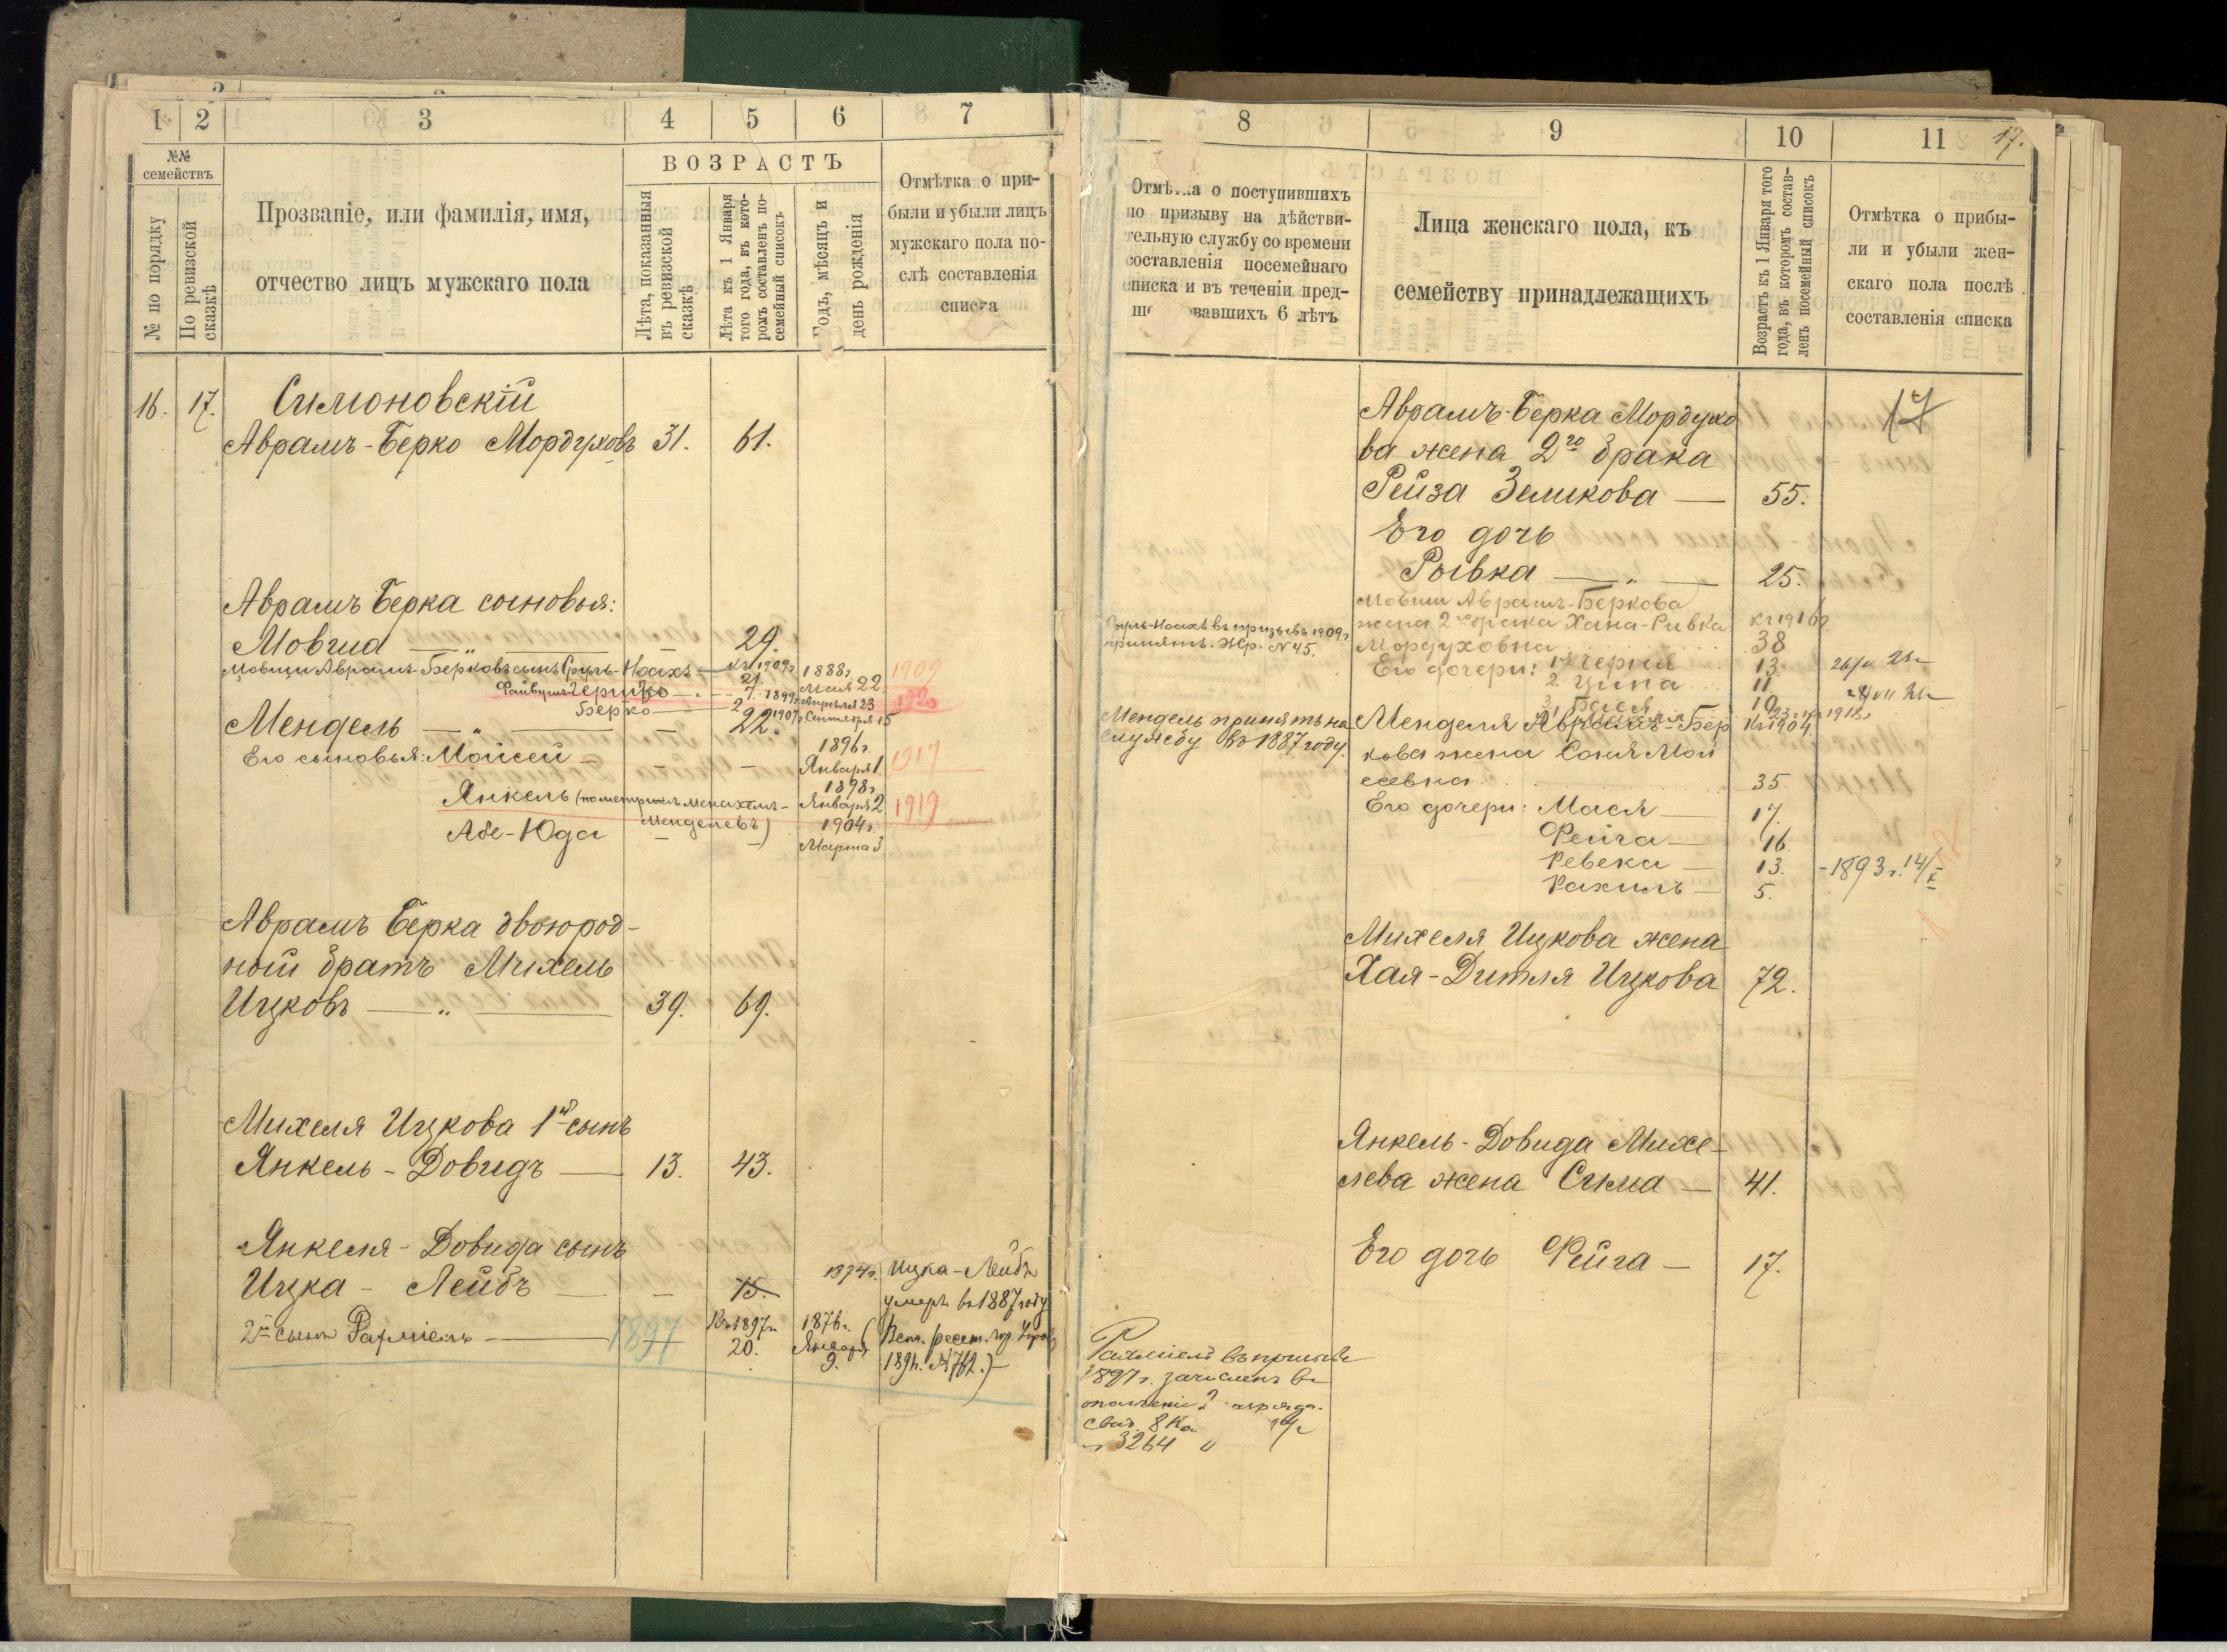 1 2 3 4 5 6 7
№№ семействъ
№ по порядку
По ревизской сказкѣ
Прозваніе, или фамилія, имя,
отчество лицъ мужскаго пола
ВОЗРАСТЪ
Лѣта, показанныя
въ ревизской
сказкѣ
Лѣта къ 1 Января
того года, въ кото-
ромъ составленъ по-
семейный списокъ
Годъ, мѣсяцъ и
день рожденія
Отмѣтка о при-
были и убыли лицъ
мужскаго пола по-
слѣ составленія
списка
16. 17. Симоновскій
Аврамъ-Берко Мордуховъ 31. 61.
Аврамъ Берка сыновья:
Мовша — „ — 29.
Мовши Аврамъ-Берковъ сынъ Сруль-Ноахъ — Къ 1909г. 21. 1888г. Мая 22. 1909
Файвушъ-Гершко — 7. 1899г. Апрѣля 23 1920
Берко — 2 1907г. Сентября 15
Мендель — „ — 22.
Его сыновья: Мойсей — 1896г. Января 1. 1917
Янкель (по метрикѣ Менахемъ-Менделевъ) 1898г. Января 2 1919
Абе-Юда — 1904г. Марта 3
Аврамъ Берка двоюрод-
ный братъ Михель
Ицковъ — „ — 39. 69.
Михеля Ицкова 1й сынъ
Янкель-Довидъ — 13. 43.
Янкеля-Довида сынъ
Ицка-Лейбъ — 15. 1874г. Ицка-Лейбъ
умеръ въ 1887 году
2й сынъ Рахміель — 1897 Къ 1897г. 20. 1876г. Января 9.
8 9 10 11
17.
Отмѣтка о поступившихъ
по призыву на дѣйстви-
тельную службу со времени
составленія посемейнаго
списка и въ теченіи пред-
шествовавшихъ 6 лѣтъ
Лица женскаго пола, къ
семейству принадлежащихъ
Возрастъ къ 1 Января того
года, въ которомъ состав-
ленъ посемейный списокъ
Отмѣтка о прибы-
ли и убыли жен-
скаго пола послѣ
составленія списка
Аврамъ-Берка Мордухо
ва жена 2го брака
Рейза Зеликова — 55.
17
Его дочь
Рывка — „ — 25.
Мовши Аврамъ-Беркова
жена 2го брака Хана-Ривка Къ 1916г
Мордуховна 38
Сруль-Ноахъ въ призывъ 1909г.
принятъ. Жр. № 45.
Его дочери: 1. Черня 13.
2. Ципа 11
3. Бася 10
Мендель принятъ на
службу въ 1887 году.
Менделя Аврамъ-Бер Къ 1904.
кова жена Соня Мой
сеевна 35.
Его дочери: Мася — 17.
Фейга — 16.
Ревека — 13. -1893г. 14/X
Рахиль — 5.
Михеля Ицкова жена
Хая-Дитля Ицкова 72.
Янкель-Довида Михе-
лева жена Сима — 41.
Его дочь Фейга — 17.
Рахміель въ призывѣ
1897г. зачисленъ въ
ополченіе 2 разряда.
3264